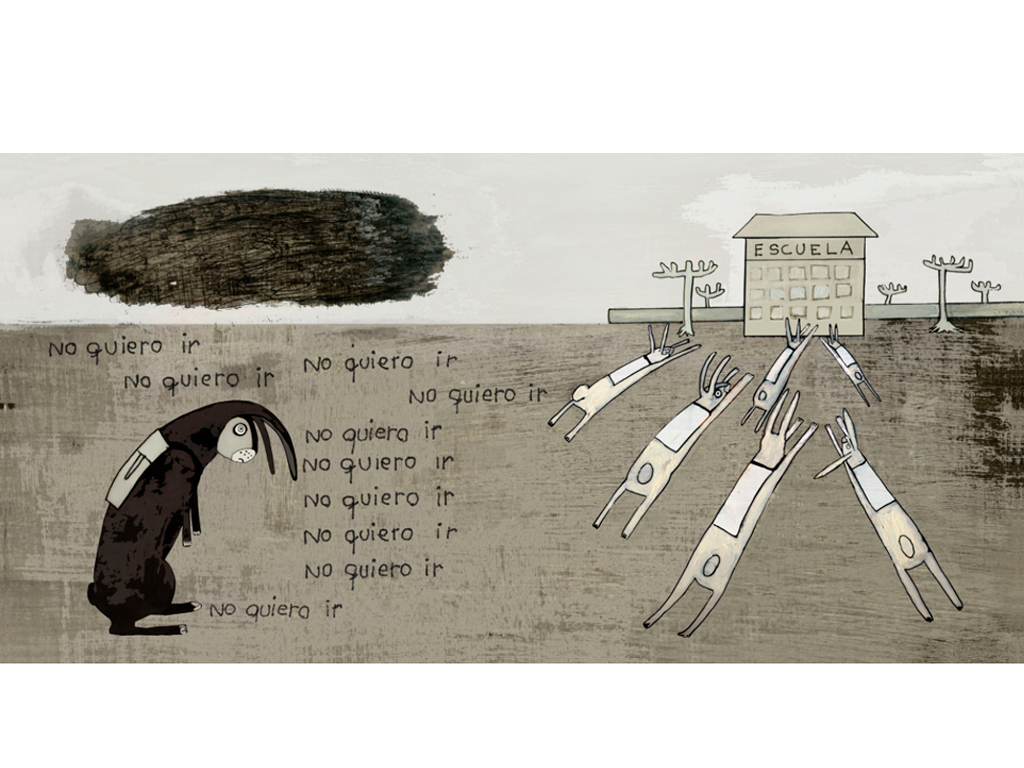 ESCUELA
No quiero ir
No quiero ir
No quiero ir
No quiero ir
No quiero ir
No quiero ir
No quiero ir
No quiero ir
No quiero ir
No quiero ir